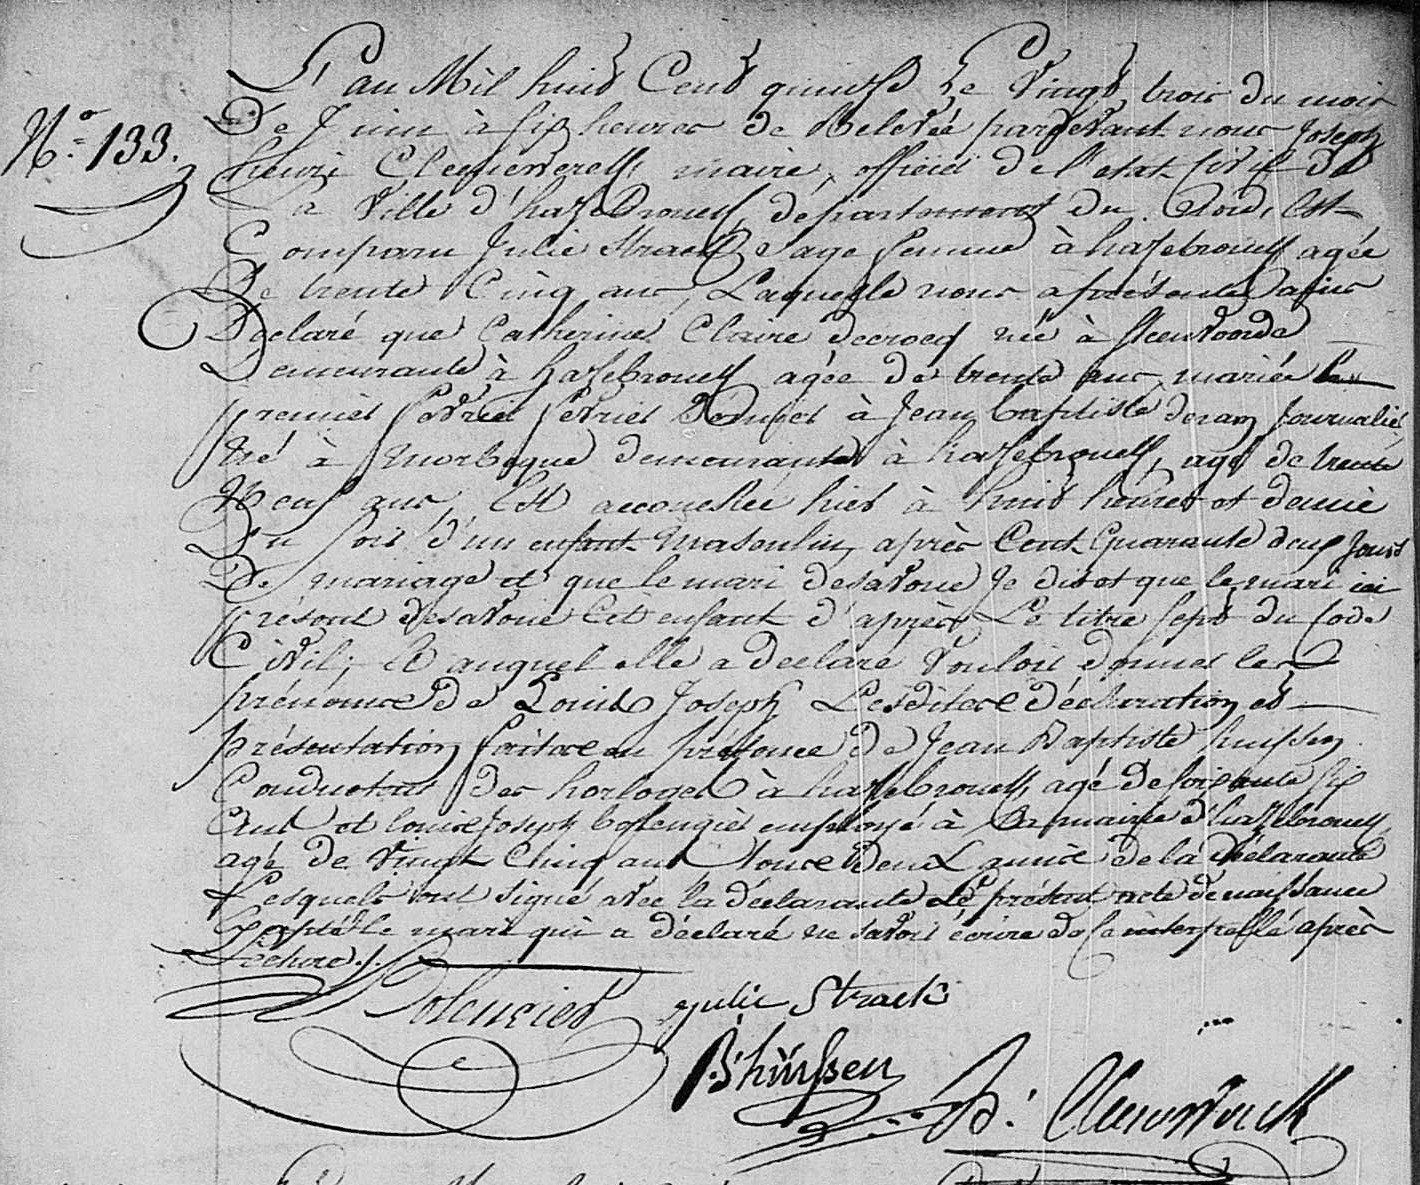 N.o 133.
L'an Mil huit Cent quinze Le Vingt trois du mois
De Juin à six heures de Relevée pardevant nous Joseph
henri Clenewerck maire, officier de l'etat Civil de
La Ville d'hazebrouck, departement du Nord, Est
Comparu Julie Strack Sage femme à hazebrouck agée
De trente Cinq ans, Laquelle nous a présenté ains
Déclaré que Catherine Claire decrocq née à Steenvoorde
Demeurante à hazebrouck agée de trente ans, mariée le
premier fevrier fevrier dernier à Jean baptiste deram Journalier
Né à Morbeque demeurante à hazebrouck, agé de trente
Neuf ans, Est accouchée hier à huit heures et demie
Du Soir d'un enfant Masculin, après Cent Quarante deux Jours
De mariage et que le mari desavoue Je dis et que le mari ici
présent desavoue Cet enfant d'après Le titre sept du Code
Civil; Et auquel elle a declaré Vouloir donner les
prénoms De Louis Joseph Lesdites déclaration et
présentation faites en présence De Jean Baptiste huissen
Conducteur des horloges à hazebrouck, agé de soixante six
Ans et louis Joseph bolengier employé à La mairie d'hazebrouck
agé de Vingt Cinq ans tous deux amis de la déclarante
Lesquels ont signé avec la déclarante le présent acte de naissance
Excepté le mari qui a déclaré ne savoir écrire de Ce interpellé après
Lecture ./.
Bolengier julie Strack
B: hüissen
h: Clenewerck